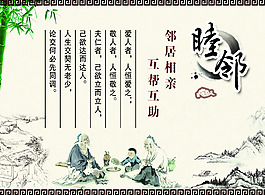 睦邻
邻居相亲
互帮互助
爱人者，人恒爱之，
敬人者，人恒敬之。
夫仁者，己欲立而立人，
己欲达而达人。
人生交契无老少，
论交何必先同调。